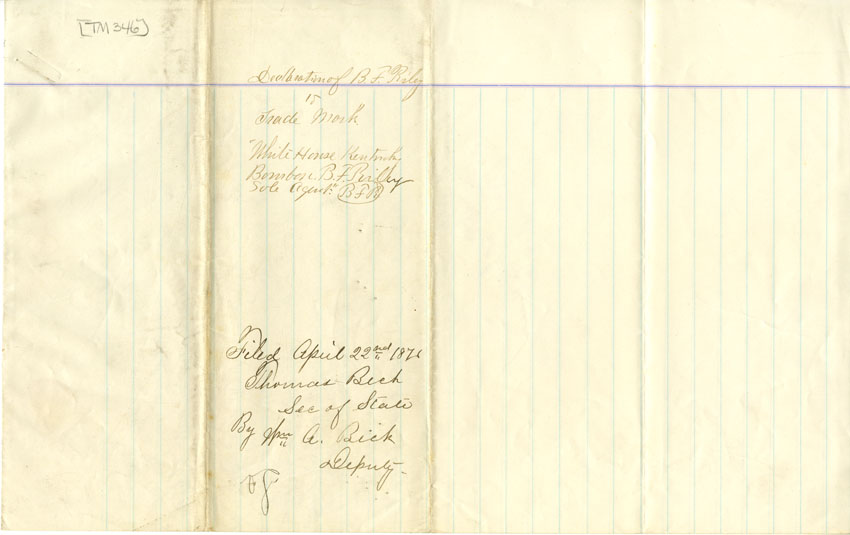 [TM 346]
Declaration of B. F. Riley
to
Trade Mark
"White House Kentucky
Bourbon. B. F. Reilly
Sole Agent." B F R
Filed April 22nd 1876
Thomas Beck
Sec of State
By Wm A. Beck
Deputy